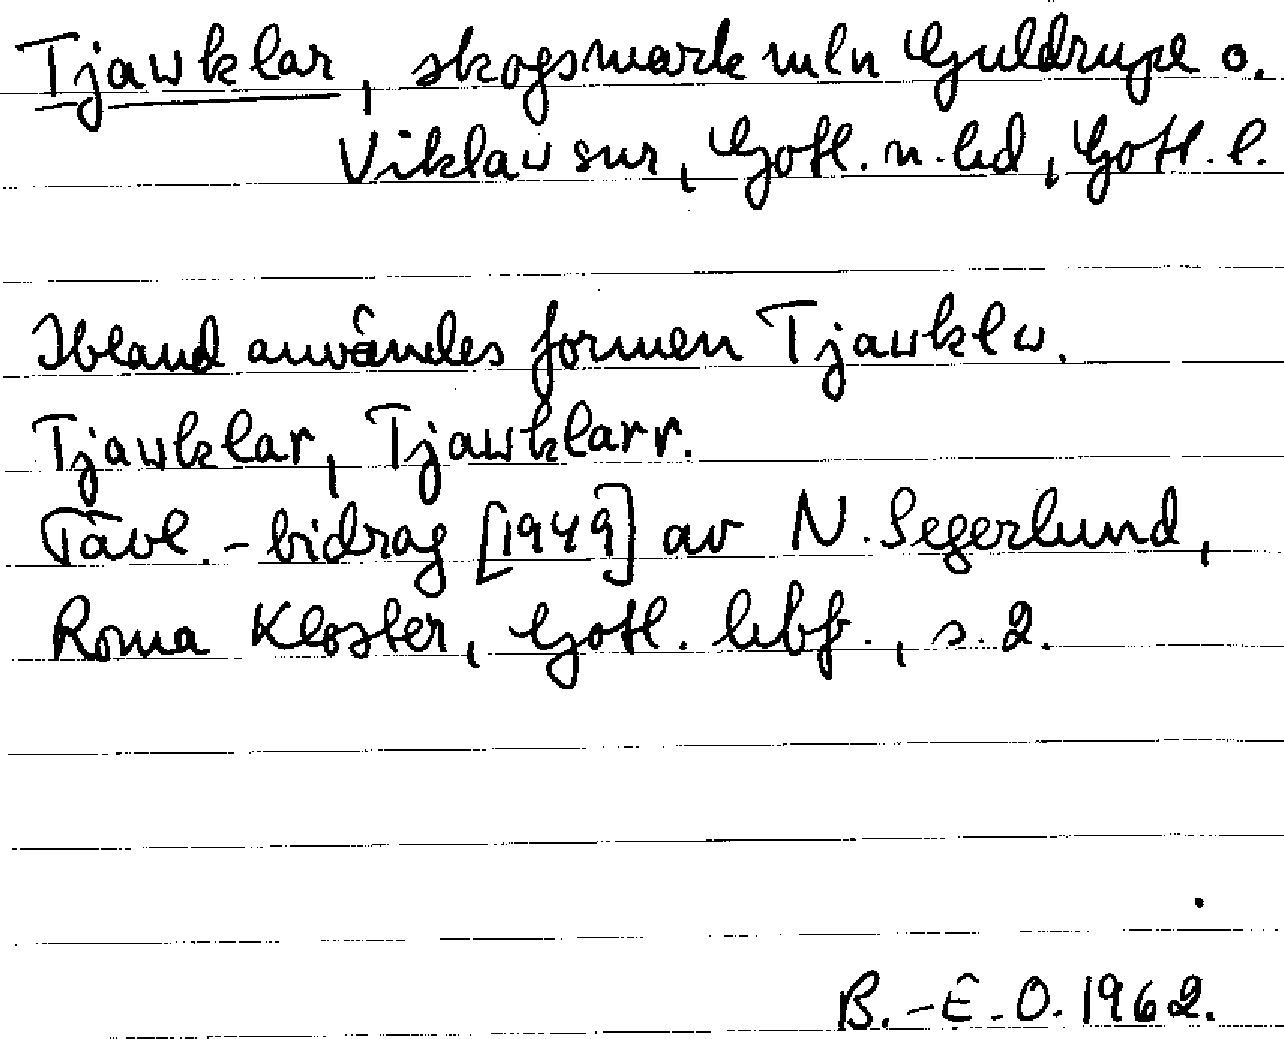 Tjauklar, skogsmark mln Guldrupe o.
Viklau snr, Gotl. n. hd, Gotl. l.
Ibland användes formen Tjauklu.
Tjauklar, Tjauklarr.
Tävl.-bidrag [1949] av N. Segerlund,
Roma Kloster, Gotl. hbf., s. 2.
B.-E. O. 1962.